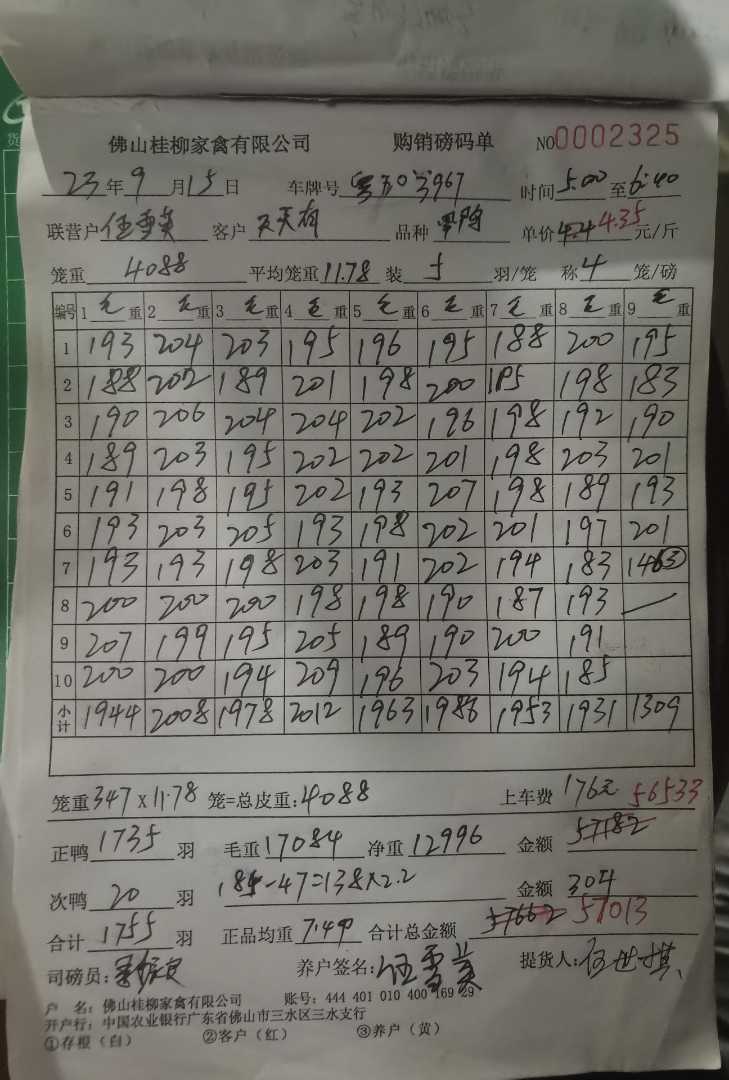 佛山桂柳家禽有限公司 购销磅码单 NO0002325
23年9月15日 车牌号 时间5.00至6:40
联营户伍雪英 客户天天有 品种 单价4.4 4.35元/斤
笼重4088 平均笼重11.78装5羽/笼 称4笼/磅
编号 1 毛重 2 毛重 3 毛重 4 毛重 5 毛重 6 毛重 7 毛重 8 毛重 9 毛重
1 193 204 203 195 196 195 188 200 195
2 188 202 189 201 198 200 185 198 183
3 190 206 204 204 202 196 198 192 190
4 189 203 195 202 202 201 198 203 201
5 191 198 195 202 193 207 198 189 193
6 193 203 205 193 198 202 201 197 201
7 193 193 198 203 191 202 194 183 146③
8 200 200 200 198 198 190 187 193
9 207 199 195 205 189 190 200 191
10 200 200 194 209 196 203 194 185
小计 1944 2008 1978 2012 1963 1986 1953 1931 1309
笼重347×11.78笼=总皮重:4088 上车费176元 56533
正鸭1735羽 毛重17084净重12996 金额57182
次鸭20羽 185-47=138×2.2 金额304
合计1755羽 正品均重7.49 合计总金额57662 57013
司磅员: 养户签名:伍雪英 提货人:
户 名:佛山桂柳家禽有限公司 账号:444 401 010 400 169 29
开户行:中国农业银行广东省佛山市三水区三水支行
①存根(白) ②客户(红) ③养户(黄)